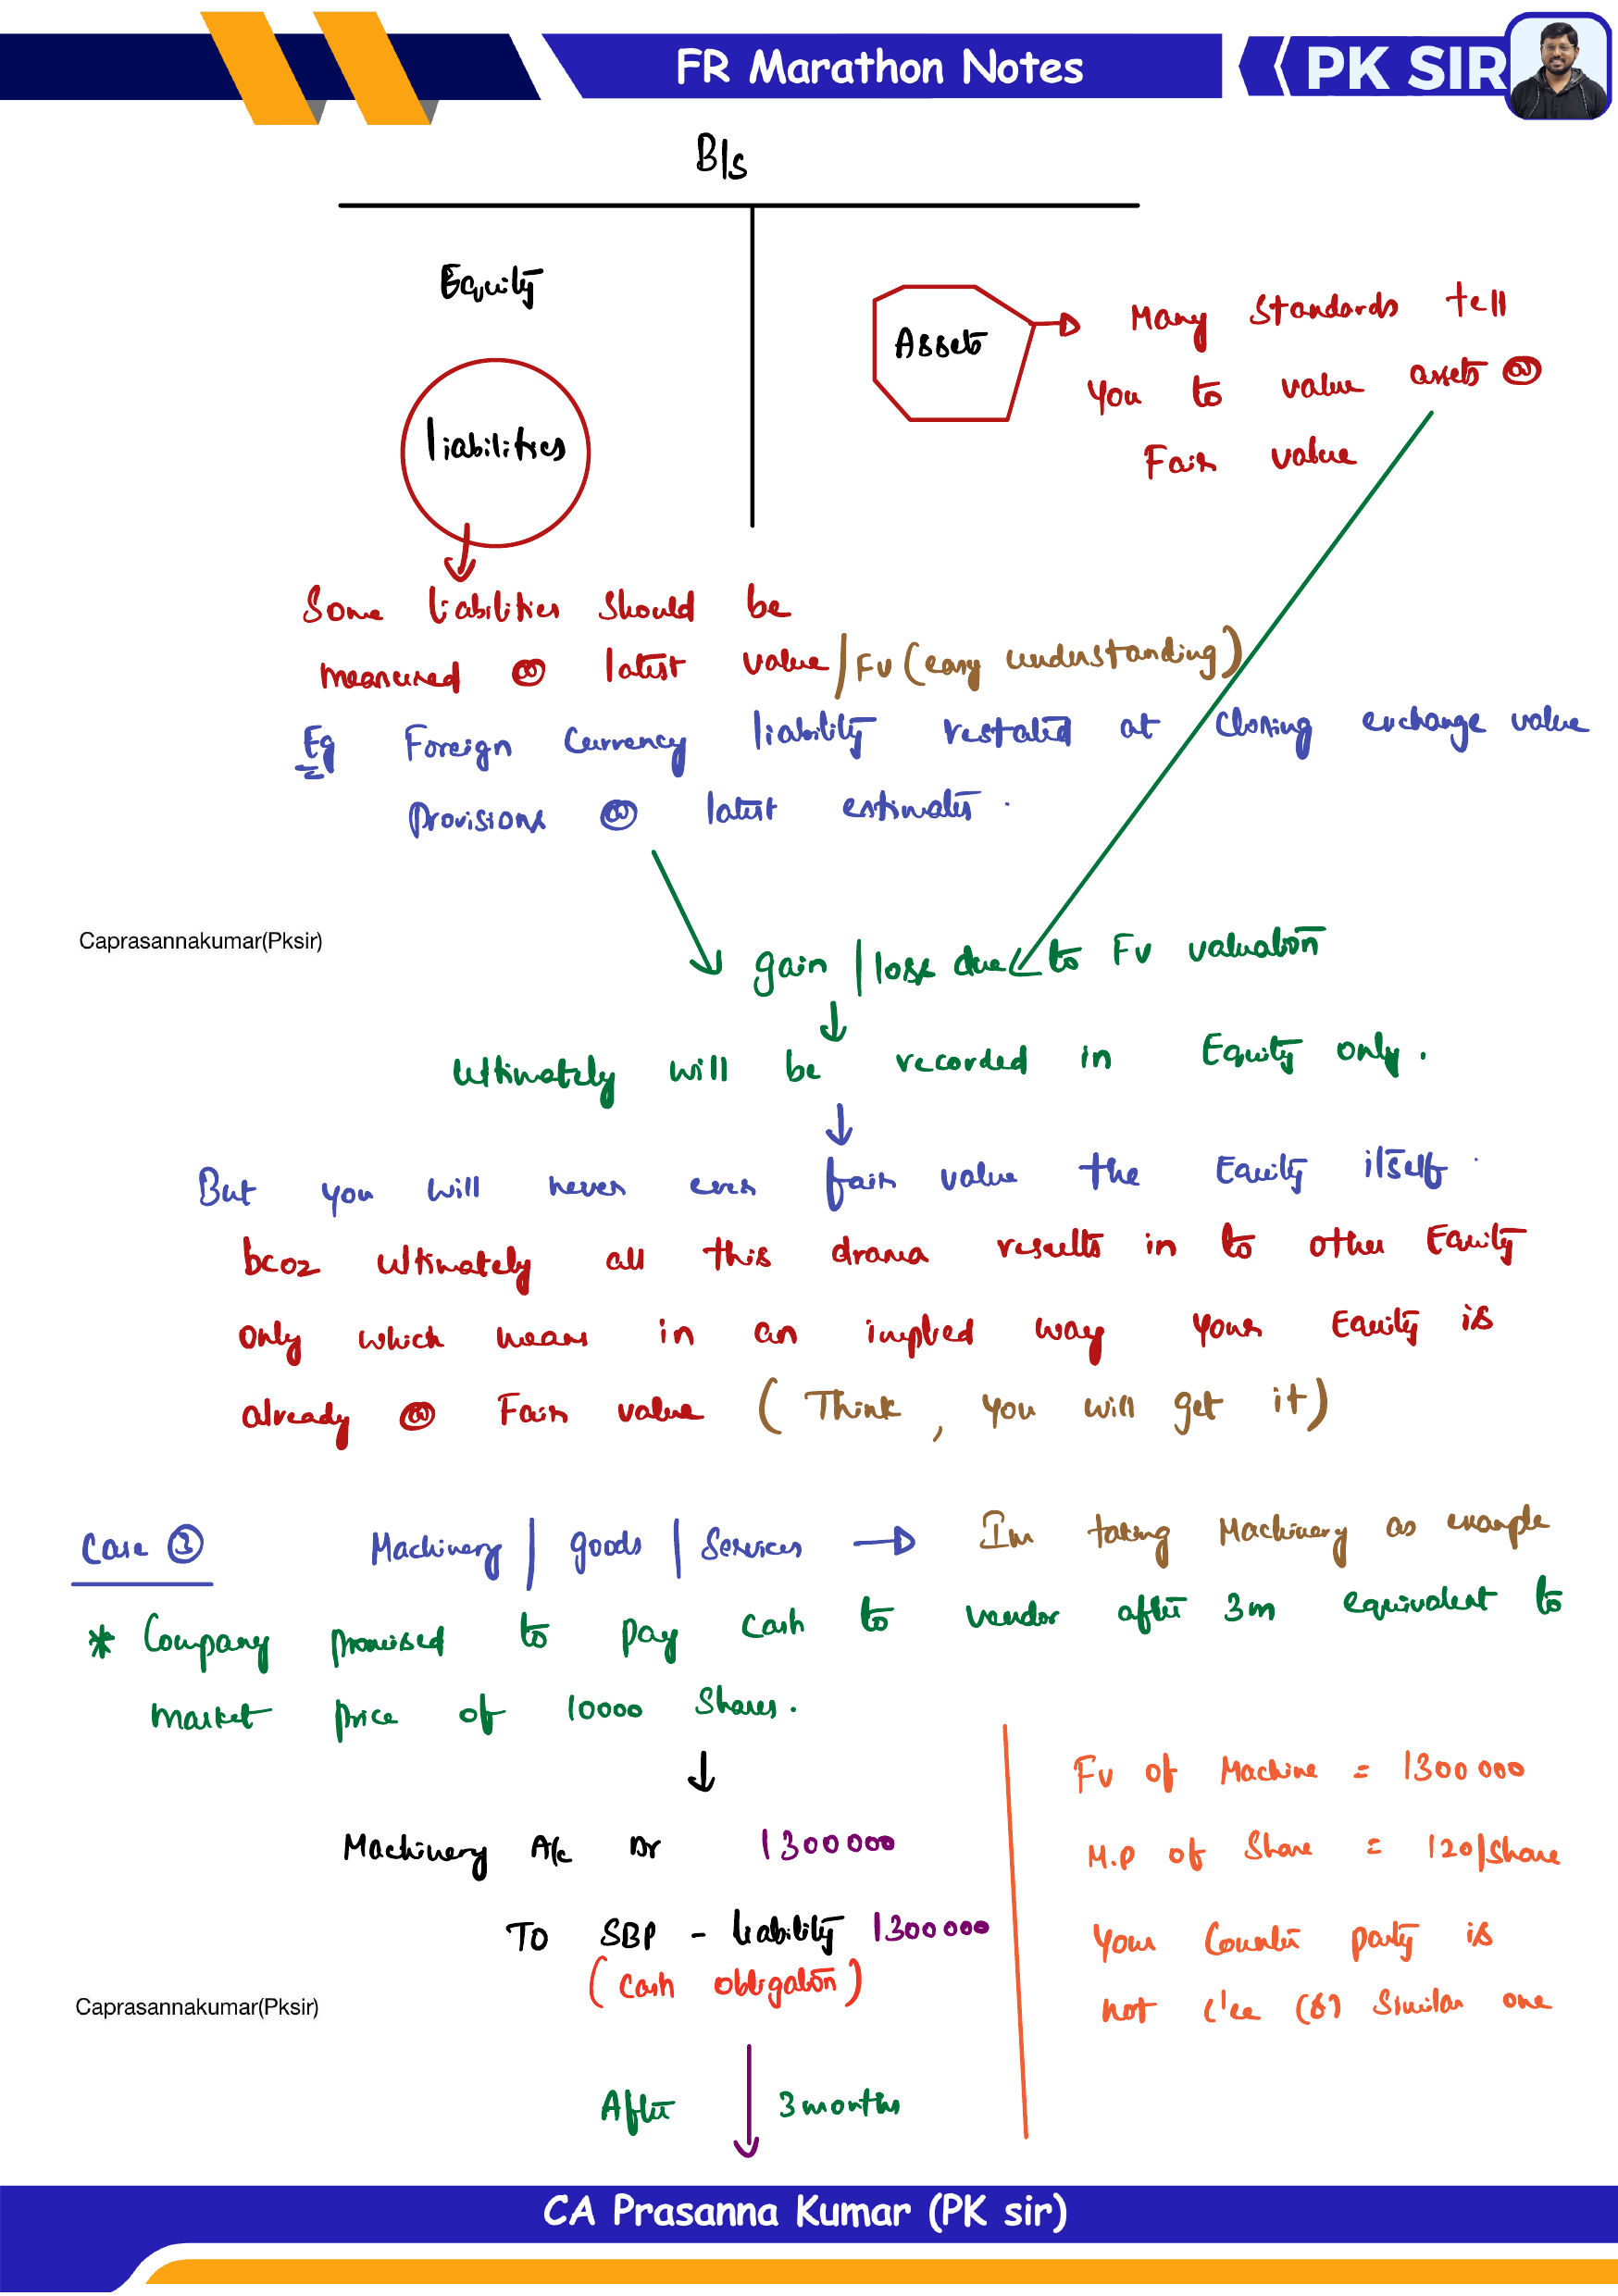 FR Marathon Notes
PK SIR
B/s
Equity
Assets
Many standards tell
you to value assets @
Fair value
liabilities
Some liabilities should be
measured @ latest value / FV (easy understanding)
Eg Foreign Currency liability restated at closing exchange value
Provisions @ latest estimates.
Caprasannakumar(Pksir)
gain / loss due to FV valuation
ultimately will be recorded in Equity only.
But you will never ever fair value the Equity itself.
bcoz ultimately all this drama results in to other Equity
only which means in an implied way your Equity is
already @ Fair value (Think, you will get it)
Case ③ Machinery / goods / Services → Im taking Machinery as example
* Company promised to pay cash to vendor after 3m equivalent to
market price of 10000 Shares.
Machinery A/c Dr 1300000
To SBP - liability 1300000
(Cash obligation)
FV of Machine = 1300000
M.P of Share = 120/share
Your Counter party is
not e'ee (or) Similar one
Caprasannakumar(Pksir)
After 3 months
CA Prasanna Kumar (PK sir)